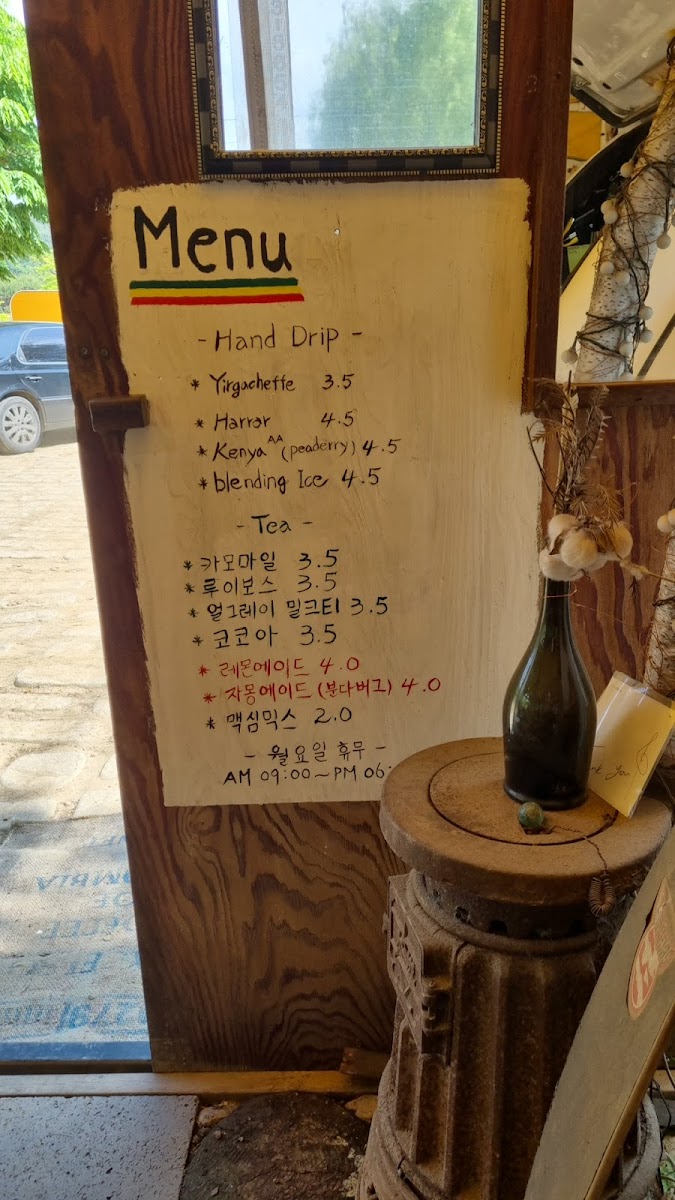 Menu
- Hand Drip -
* Yirgacheffe 3.5
* Harrar 4.5
* Kenya AA (peaderry) 4.5
* blending Ice 4.5
- Tea -
* 카모마일 3.5
* 루이보스 3.5
* 얼그레이 밀크티 3.5
* 코코아 3.5
* 레몬에이드 4.0
* 자몽에이드 (분다버그) 4.0
* 맥심믹스 2.0
- 월요일 휴무 -
AM 09:00 ~ PM 06: